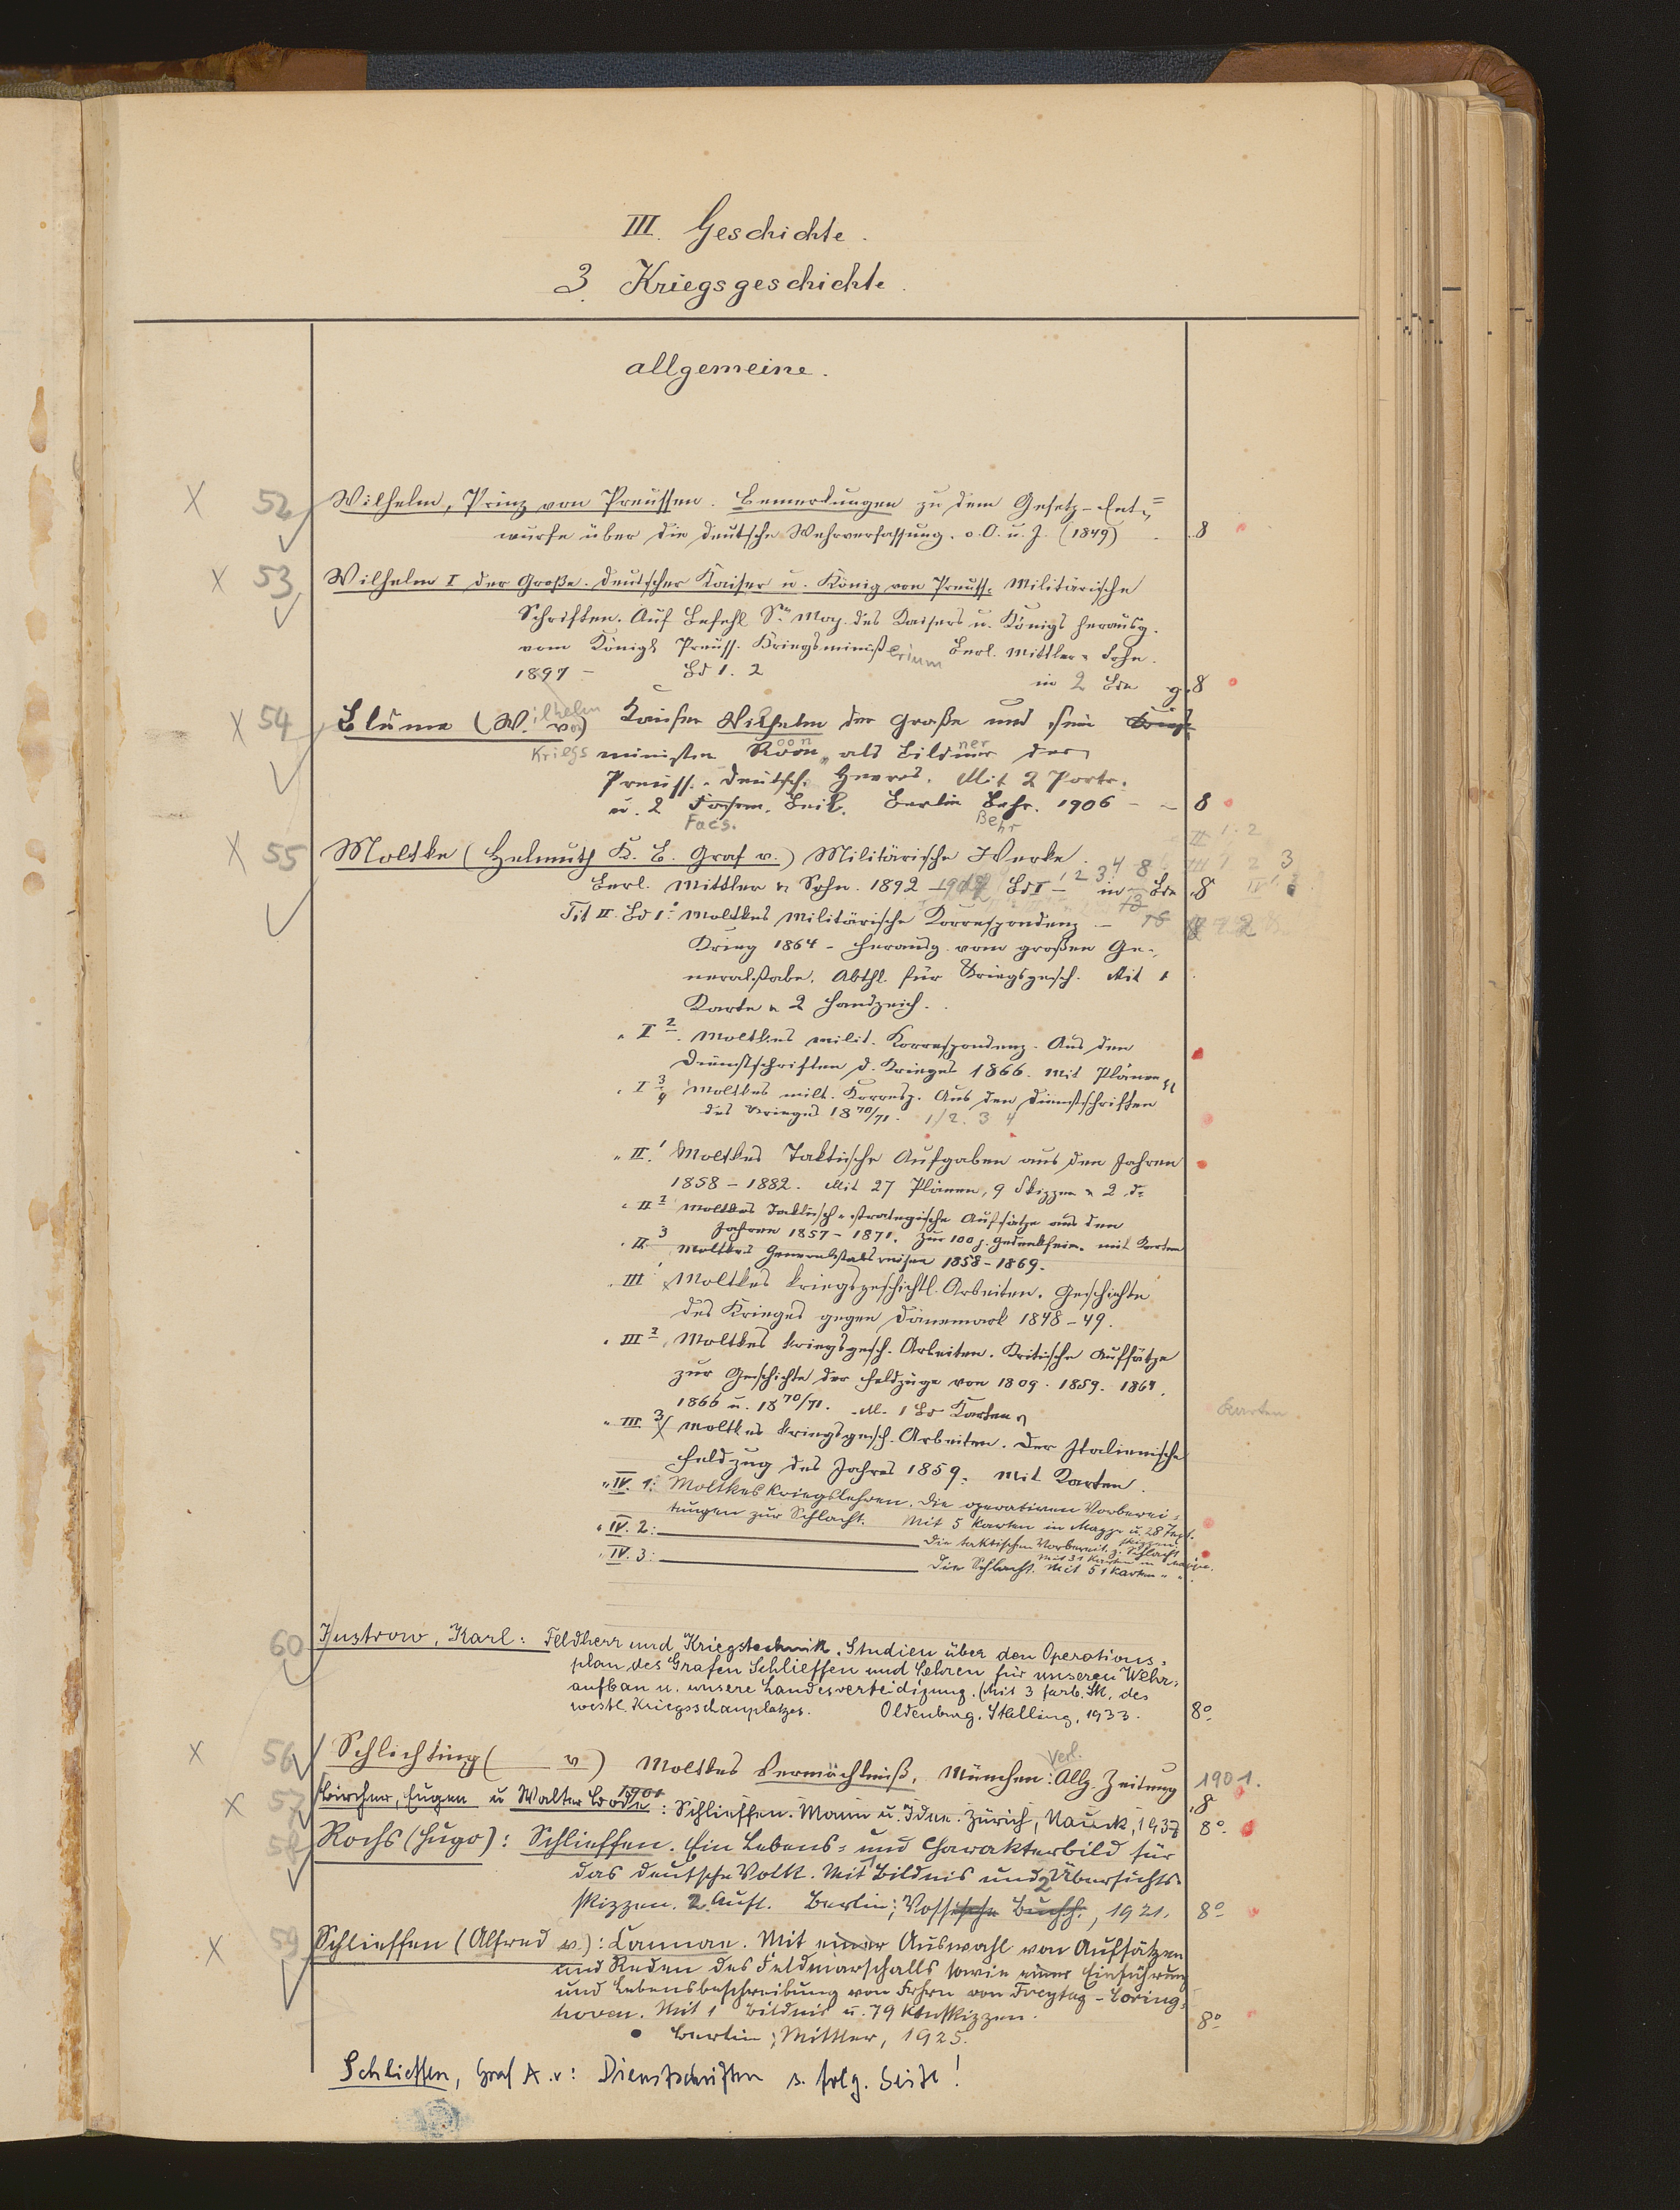 III. Geschichte.
3. Kriegsgeschichte.
allgemeine.
X 52 Wilhelm, Prinz von Preussen. Bemerkungen zu dem Gesetz-Ent=
wurfe über die deutsche Wehrverfassung. o. O. u. J. (1849) . 8
X 53 Wilhelm I der Große. Deutscher Kaiser u. König von Preuss. Militärische
Schriften. Auf Befehl Sr Maj. des Kaisers u. Königs herausg.
vom Königl Preuss. Kriegsministerium Berl. Mittler u Sohn.
1897 – Bd 1. 2 in 2 Bdn g. 8
X 54 Blume (Wilhelm v.) Kaiser Wilhelm der Große und sein
Kriegsminister Roon als Bildner des
Preuss.-Deutsch. Heeres. Mit 2 Portr.
u. 2 Facs. Beil. Berlin Behr. 1906 – – 8
Facs. Behr
X 55 Moltke (Helmuth K. B. Graf v.) Militärische Werke.
Berl. Mittler u Sohn. 1892 – Bd I – in Bdn 8
Moltkes Militärische Korrespondenz –
Krieg 1864 – herausg. vom großen Ge-
neralstabe. Abthl. für Kriegsgesch. Mit 1
Karte u 2 Handzeich.
" I 2. Moltkes milit. Korrespondenz. Aus den
Dienstschriften d. Krieges 1866. Mit Plänen
" I 3/4 Moltkes milt. Korresp. Aus den Dienstschriften
des Krieges 1870/71. 1/2. 3 4
" II. 1 Moltkes Taktische Aufgaben aus den Jahren
1858 – 1882. Mit 27 Plänen, 9 Skizzen u 2
" II 2 Moltkes Taktisch-strategische Aufsätze aus den
Jahren 1857 – 1871. Zur 100 j. Gedenkfeier. mit Karten
" II. 3 Moltkes Generalstabsreisen 1858 – 1869.
" III 1 Moltkes kriegsgeschichtl. Arbeiten. Geschichte
des Krieges gegen Dänemark 1848 – 49.
" III 2 Moltkes kriegsgesch. Arbeiten. Kritische Aufsätze
zur Geschichte der Feldzüge von 1809. 1859. 1864.
1866 u. 1870/71. M. 1 Bd Karten
Karten.
" III. 3 Moltkes kriegsgesch. Arbeiten. Der Italienische
Feldzug des Jahres 1859. Mit Karten.
" IV. 1: Moltkes Kriegslehren. Die operativen Vorberei-
tungen zur Schlacht. Mit 5 Karten in Mappe u. 28 Text-
skizzen.
" IV. 2: Die taktischen Vorbereit. z. Schlacht
Mit 31 Karten in Mappe.
" IV. 3: Die Schlacht. Mit 51 Karten " "
60 Justrow, Karl: Feldherr und Kriegstechnik. Studien über den Operations-
plan des Grafen Schlieffen und Lehren für unseren Wehr-
aufbau u. unsere Landesverteidigung. (Mit 3 farb. Sk. des
westl. Kriegsschauplatzes. Oldenburg, Stalling, 1933. 8°
X 56 Schlichting ( v) Moltkes Vermächtniß. München: Verl. Allg. Zeitung 1901.
1901 8
X 57 Bircher, Eugen u Walter Bode: Schlieffen. Mann u. Idee. Zürich, Nauck, 1937 8°
58 Rochs (Hugo): Schlieffen. Ein Lebens- und Charakterbild für
das deutsche Volk. Mit 1 Bildnis und 2 Übersichts-
skizzen. 2. Aufl. Berlin; Vossische Buchh., 1921. 8°
X 59 Schlieffen (Alfred v.): Cannae. Mit einer Auswahl von Aufsätzen
und Reden des Feldmarschalls sowie einer Einführung
und Lebensbeschreibung von Frhrn von Freytag-Loring-
hoven. Mit 1 Bildnis u. 79 Ktnskizzen. 8°
Berlin; Mittler, 1925.
Schlieffen, Graf A. v: Dienstschriften s. folg. Seite!